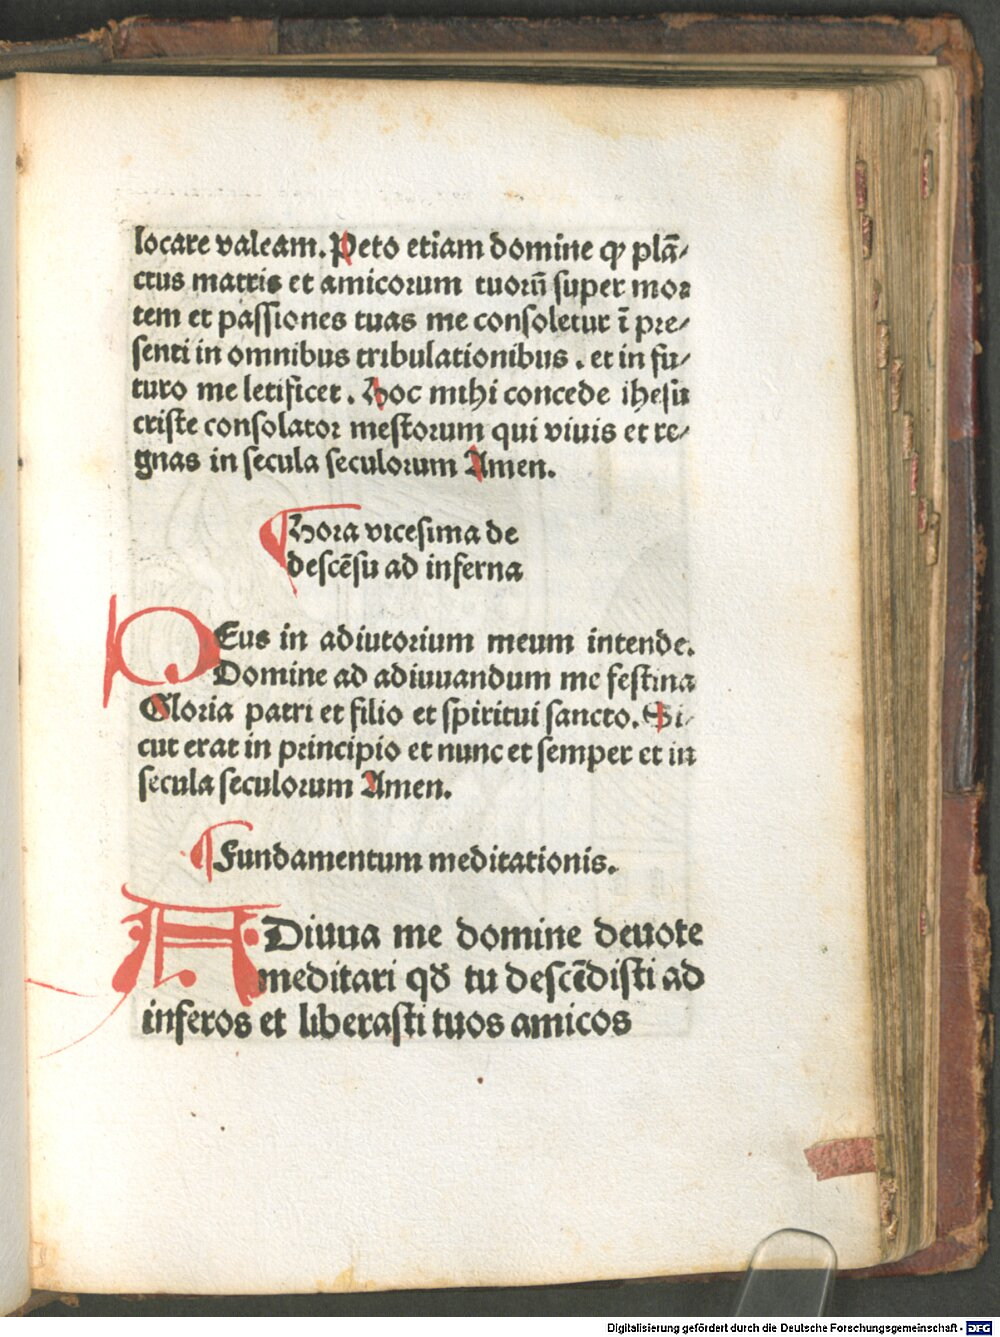 locare valeam. Peto etiam domine ꝙ plā⸗
ctus matris et amicorum tuorū super mor
tem et passiones tuas me consoletur ī pre⸗
senti in omnibus tribulationibus. et in fu⸗
turo me letificet. Hoc mihi concede ihesū
criste consolator mestorum qui viuis et re⸗
gnas in secula seculorum Amen.
Hora vicesima de
descēsu ad inferna
DEus in adiutorium meum intende.
Domine ad adiuuandum me festina
Gloria patri et filio et spiritui sancto. Si⸗
cut erat in principio et nunc et semper et in
secula seculorum Amen.
Fundamentum meditationis.
ADiuua me domine deuote
meditari qđ tu descēdisti ad
inferos et liberasti tuos amicos
Digitalisierung gefördert durch die Deutsche Forschungsgemeinschaft - DFG